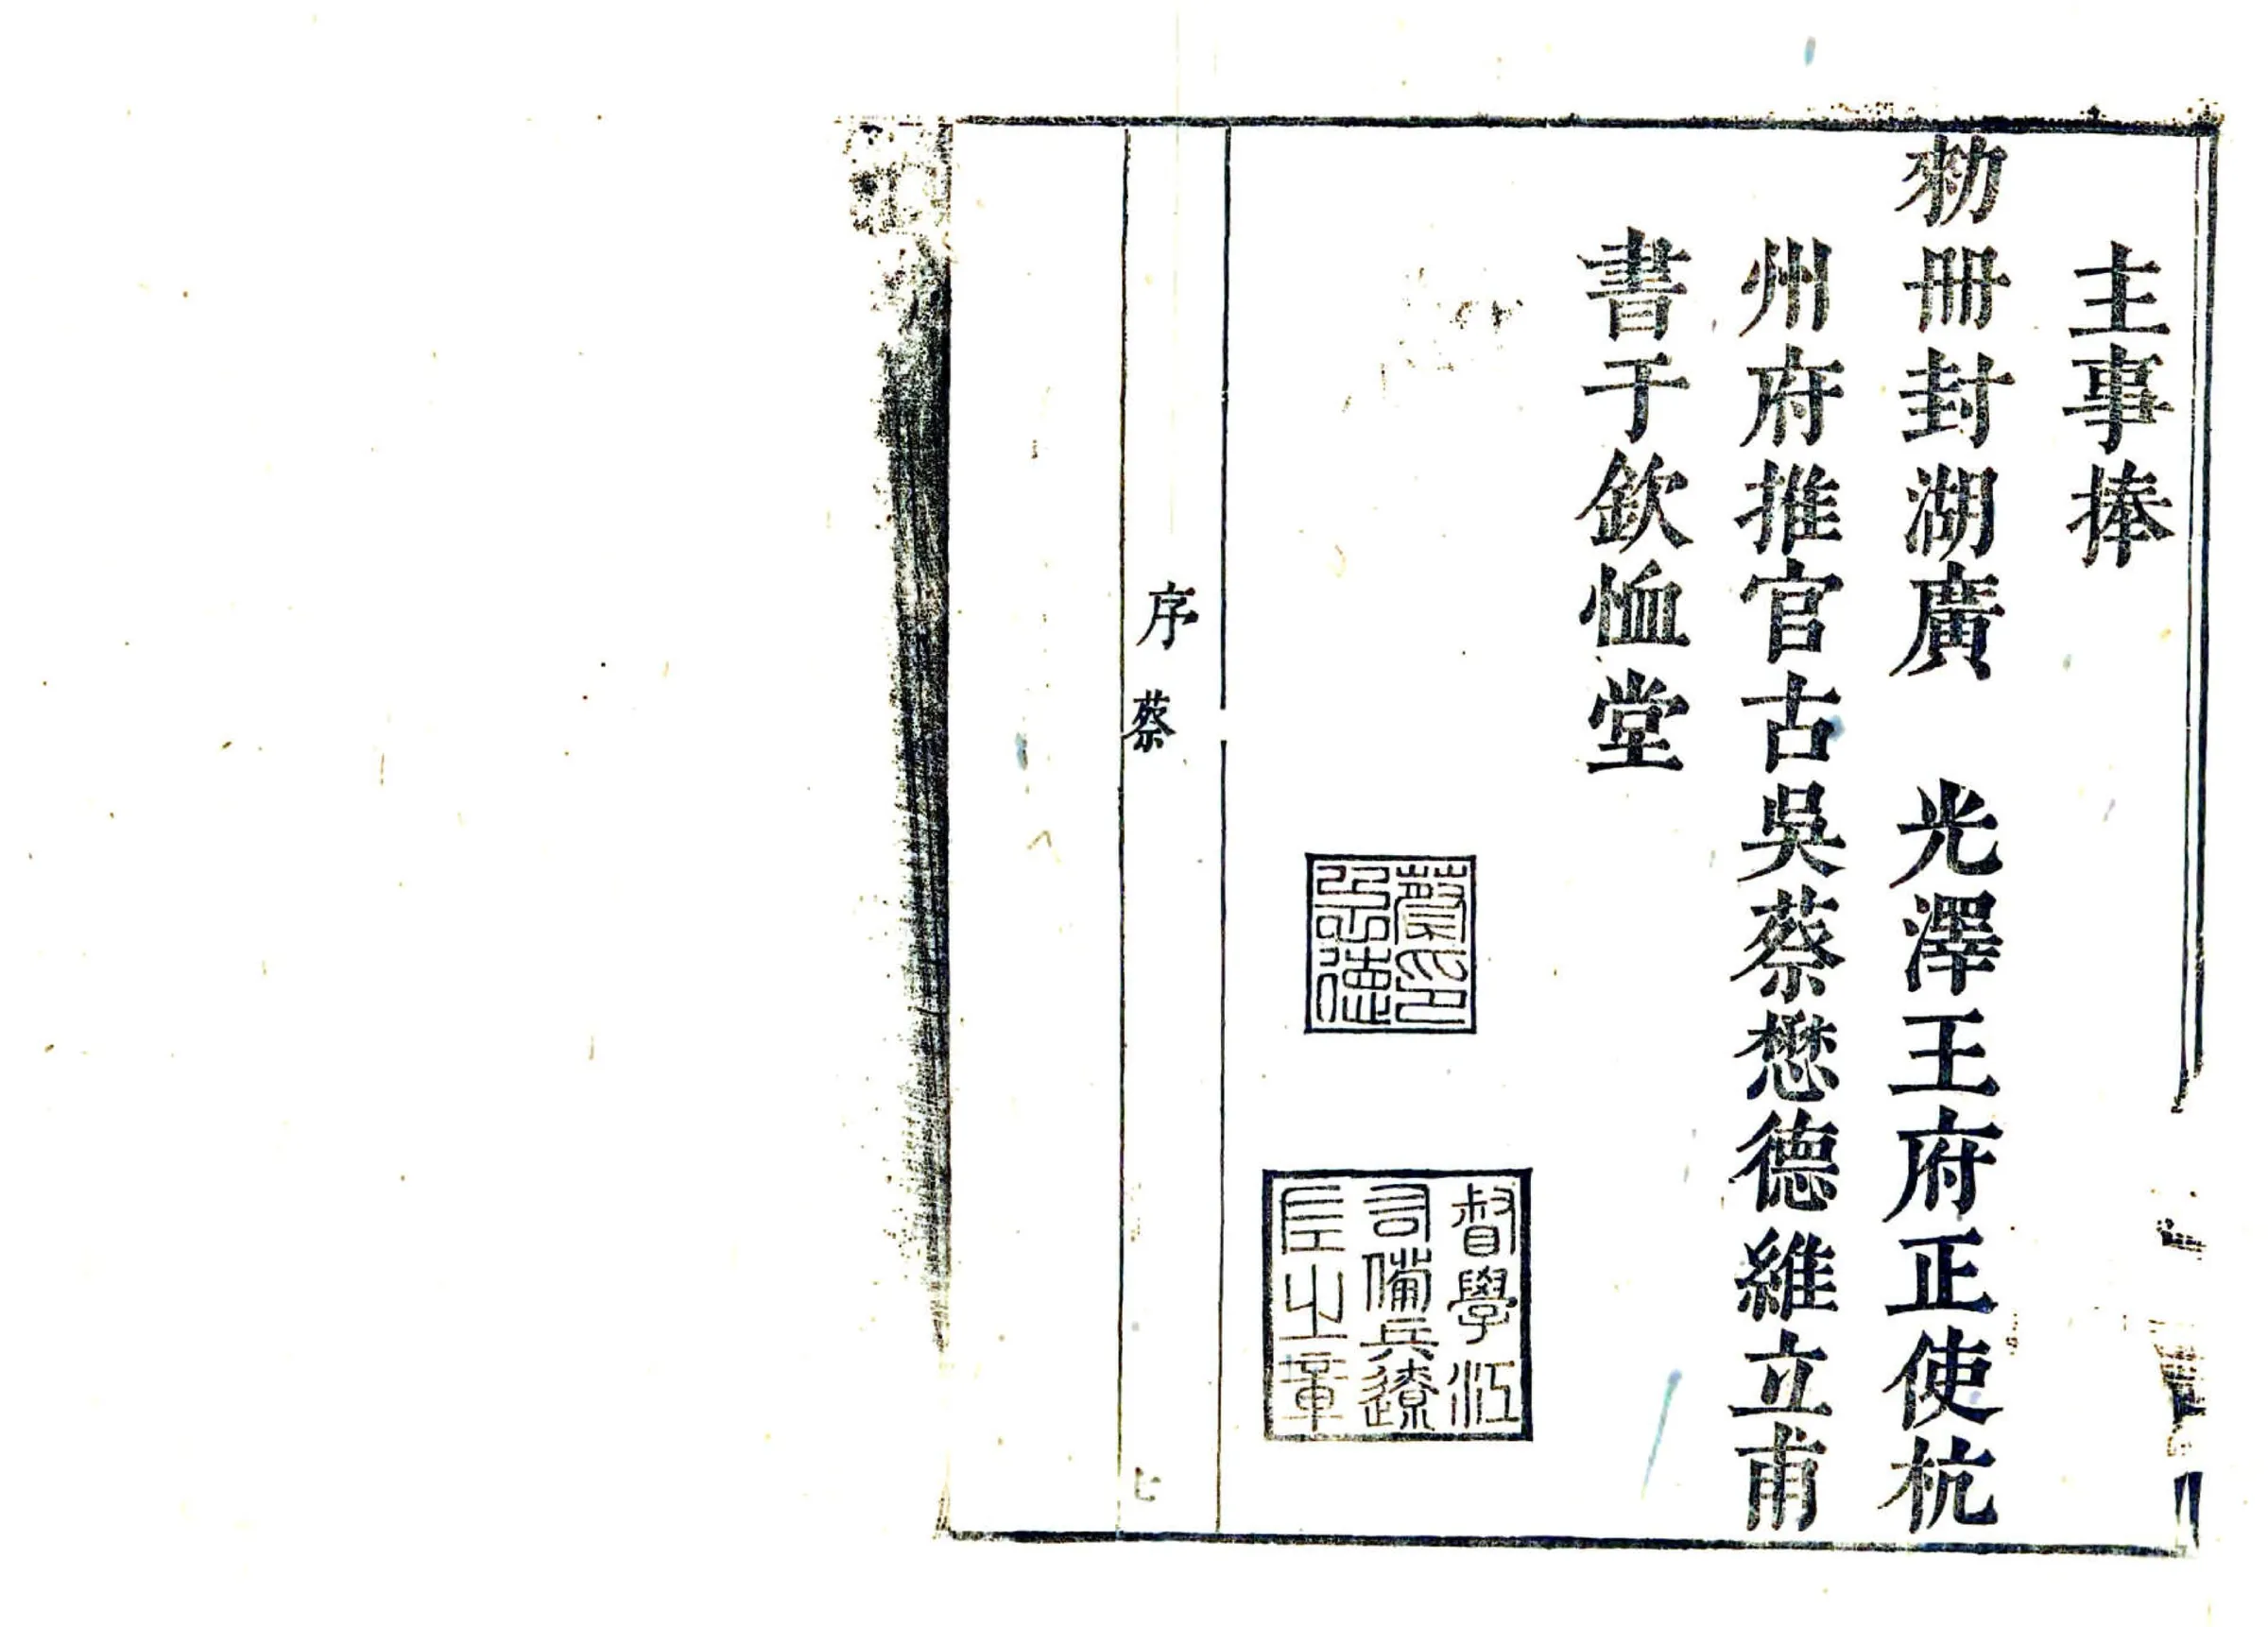 主事捧
勑冊封湖廣　光澤王府正使杭
州府推官古吳蔡懋德維立甫
書于欽恤堂
督學江
司備兵遼
左之章
序　蔡
七